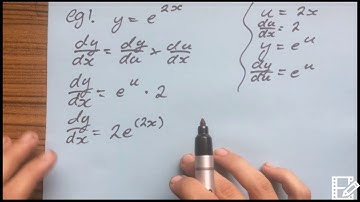 eg1. y = e^{2x}
dy/dx = dy/du × du/dx
dy/dx = e^u · 2
dy/dx = 2e^{(2x)}
u = 2x
du/dx = 2
y = e^u
dy/du = e^u